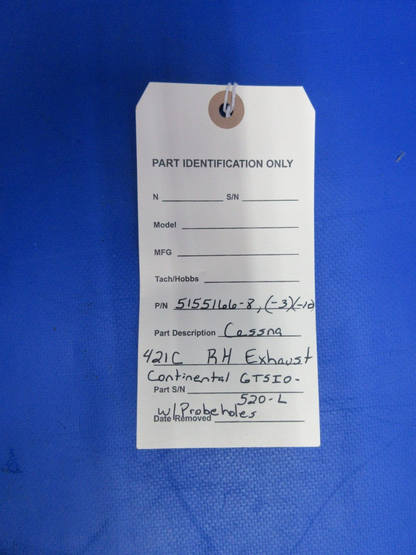 PART IDENTIFICATION ONLY
N ____________ S/N ____________
Model ________________________
MFG ________________________
Tach/Hobbs ____________________
P/N 5155166-8, (-3)(-12
Part Description Cessna
421C RH Exhaust
Continental GTSIO-
Part S/N 520-L
w/ Probeholes
Date Removed ________________